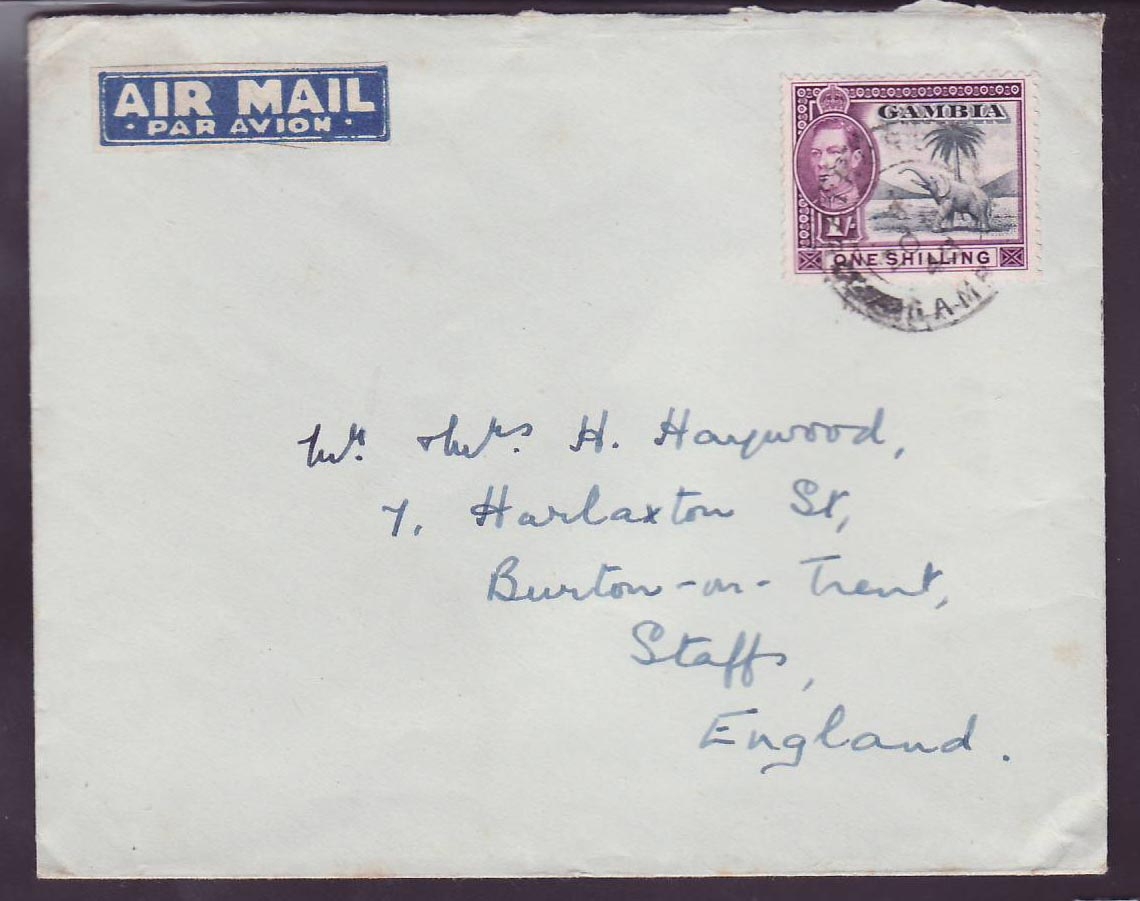 AIR MAIL
· PAR AVION ·
GAMBIA
1/-
ONE SHILLING
Mr. & Mrs. H. Haywood,
7. Harlaxton St,
Burton-on-Trent,
Staffs,
England.